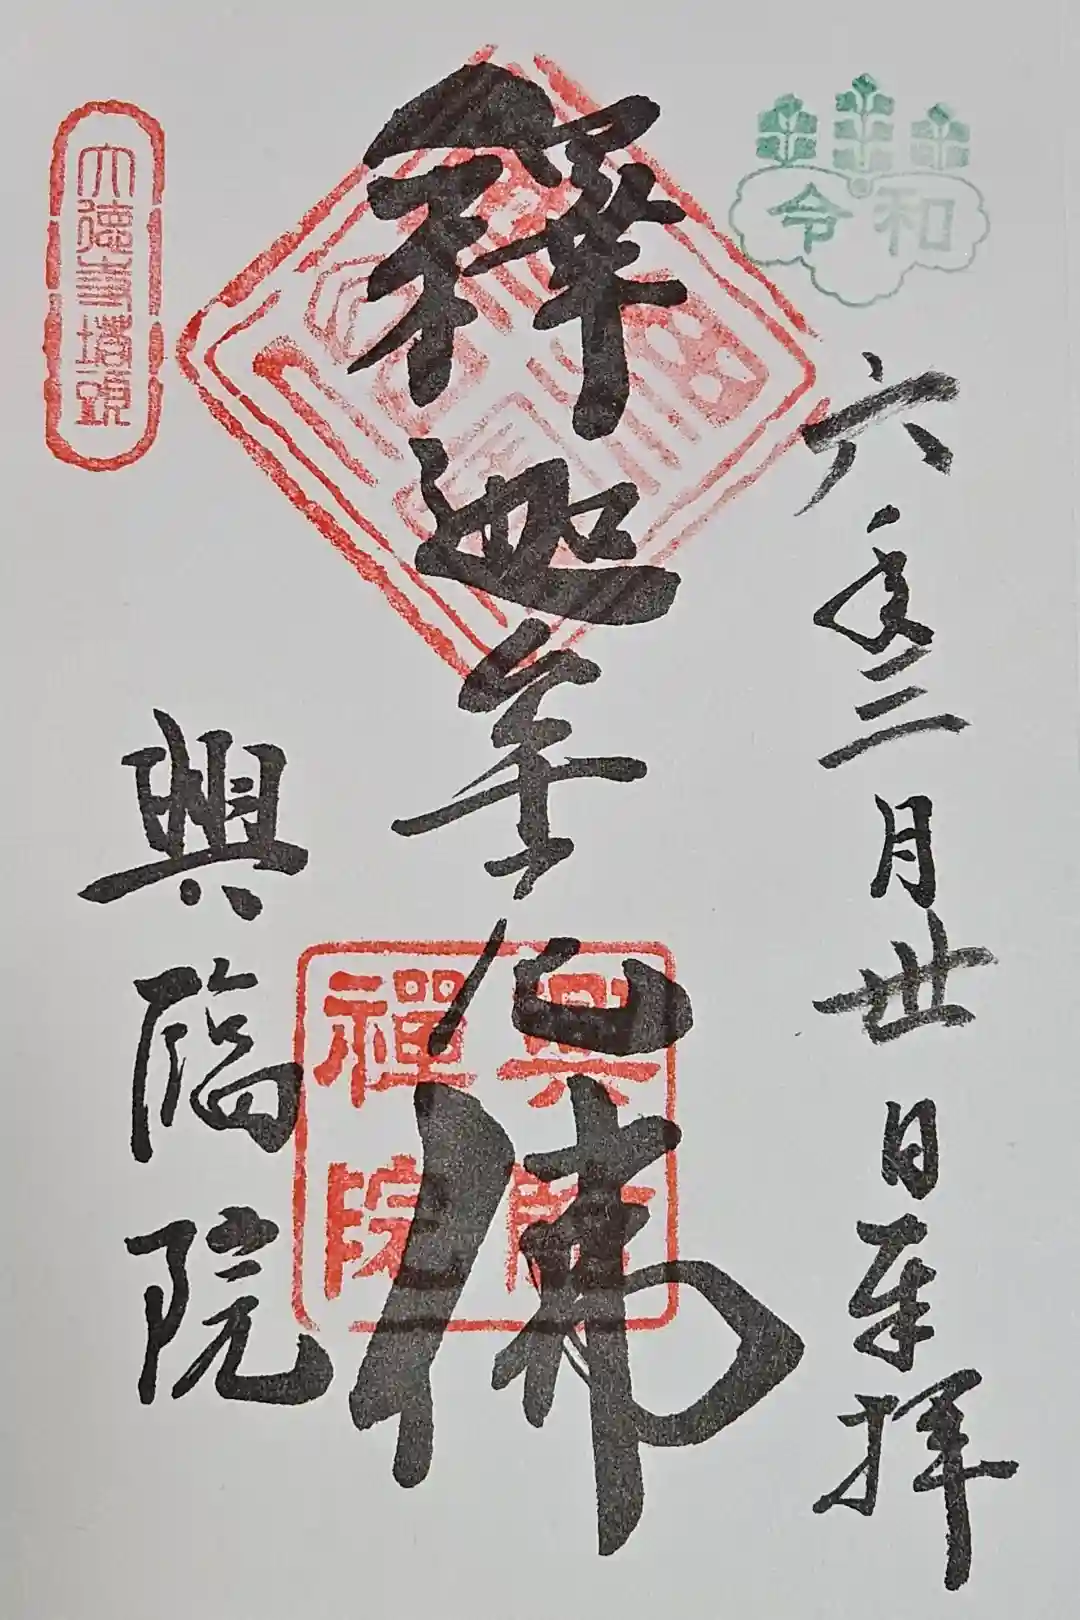 令和
六年三月丗日奉拝
釋迦牟尼佛
興臨禪院
興臨院
大徳寺塔頭